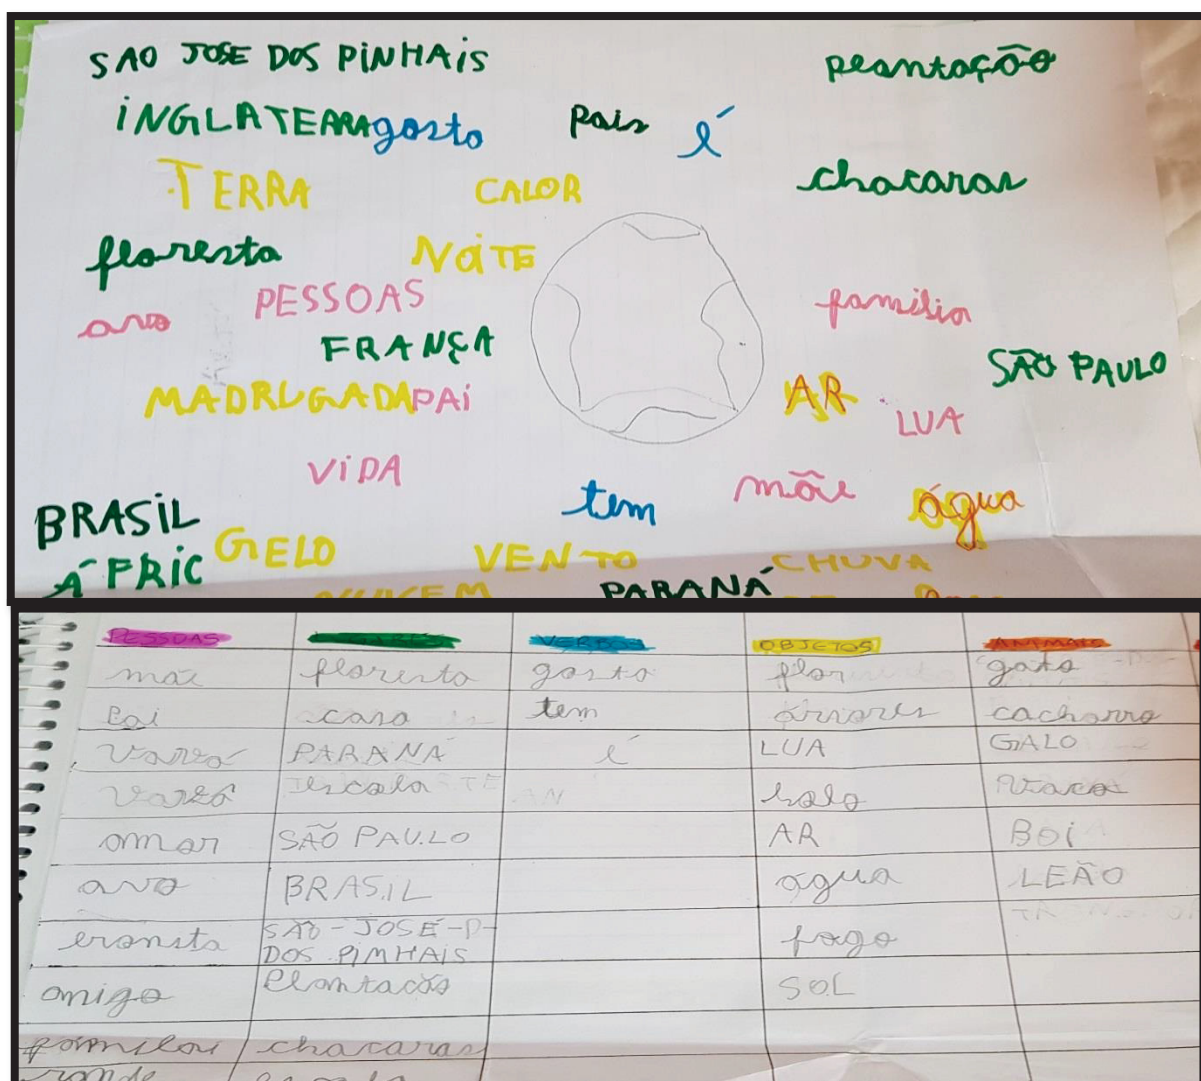 SAO JOSE DOS PINHAIS
peantação
INGLATEARA gosto
pais é
TERRA
CALOR
chacaras
floresta
NOITE
PESSOAS
família
avo
FRANÇA
SÃO PAULO
MADRUGADA PAI
AR
LUA
VIDA
tem
mãe
água
BRASIL
GELO
VENTO
CHUVA
ÁFRIC
PARANÁ
PESSOAS VERBOS OBJETOS ANIMAIS
mãe floresta gosto flor gato
Pai casa tem árvores cachorro
vovó PARANÁ é LUA GALO
vovô Escola bolo vaca
omar SÃO PAULO AR BOI
avo BRASIL água LEÃO
SÃO-JOSÉ-D-
DOS PIMHAIS fogo
amigo Plantação SOL
chacaras